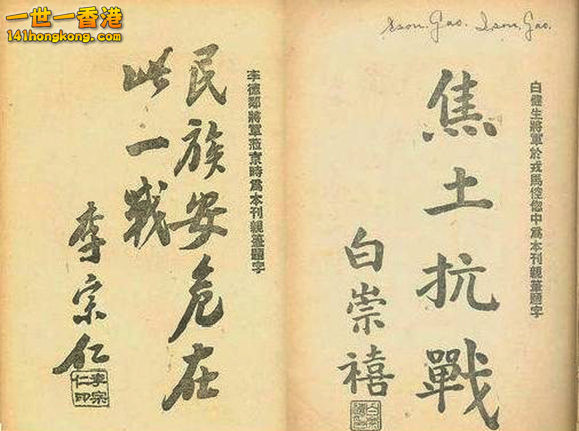 一世一香港
141hongkong.com
Ison Gao. Ison Gao.
白健生將軍於戎馬倥偬中為本刊親筆題字
焦土抗戰
白崇禧
李德鄰將軍蒞京時為本刊親筆題字
民族安危在
此一戰
李宗仁
李宗
仁印